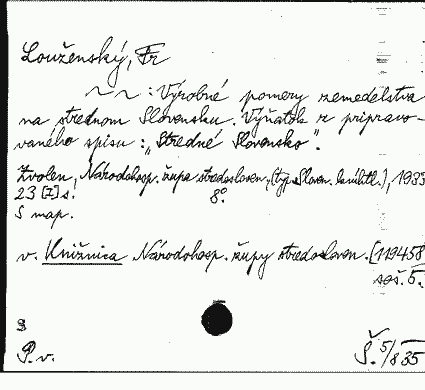 Louženský, Fr
~ ~ : Výrobné pomery zemedelstva
na strednom Slovensku. Výňatok z pripravo-
vaného spisu: „Stredné Slovensko".
Zvolen, Národohosp. župa stredosloven., (typ. Sloven. kníhtl.), 1933
23 [I] s. 8°.
S map.
v. Knižnica Národohosp. župy stredosloven. [119458
soš. 5.
P. v.
Š. 5/8 35